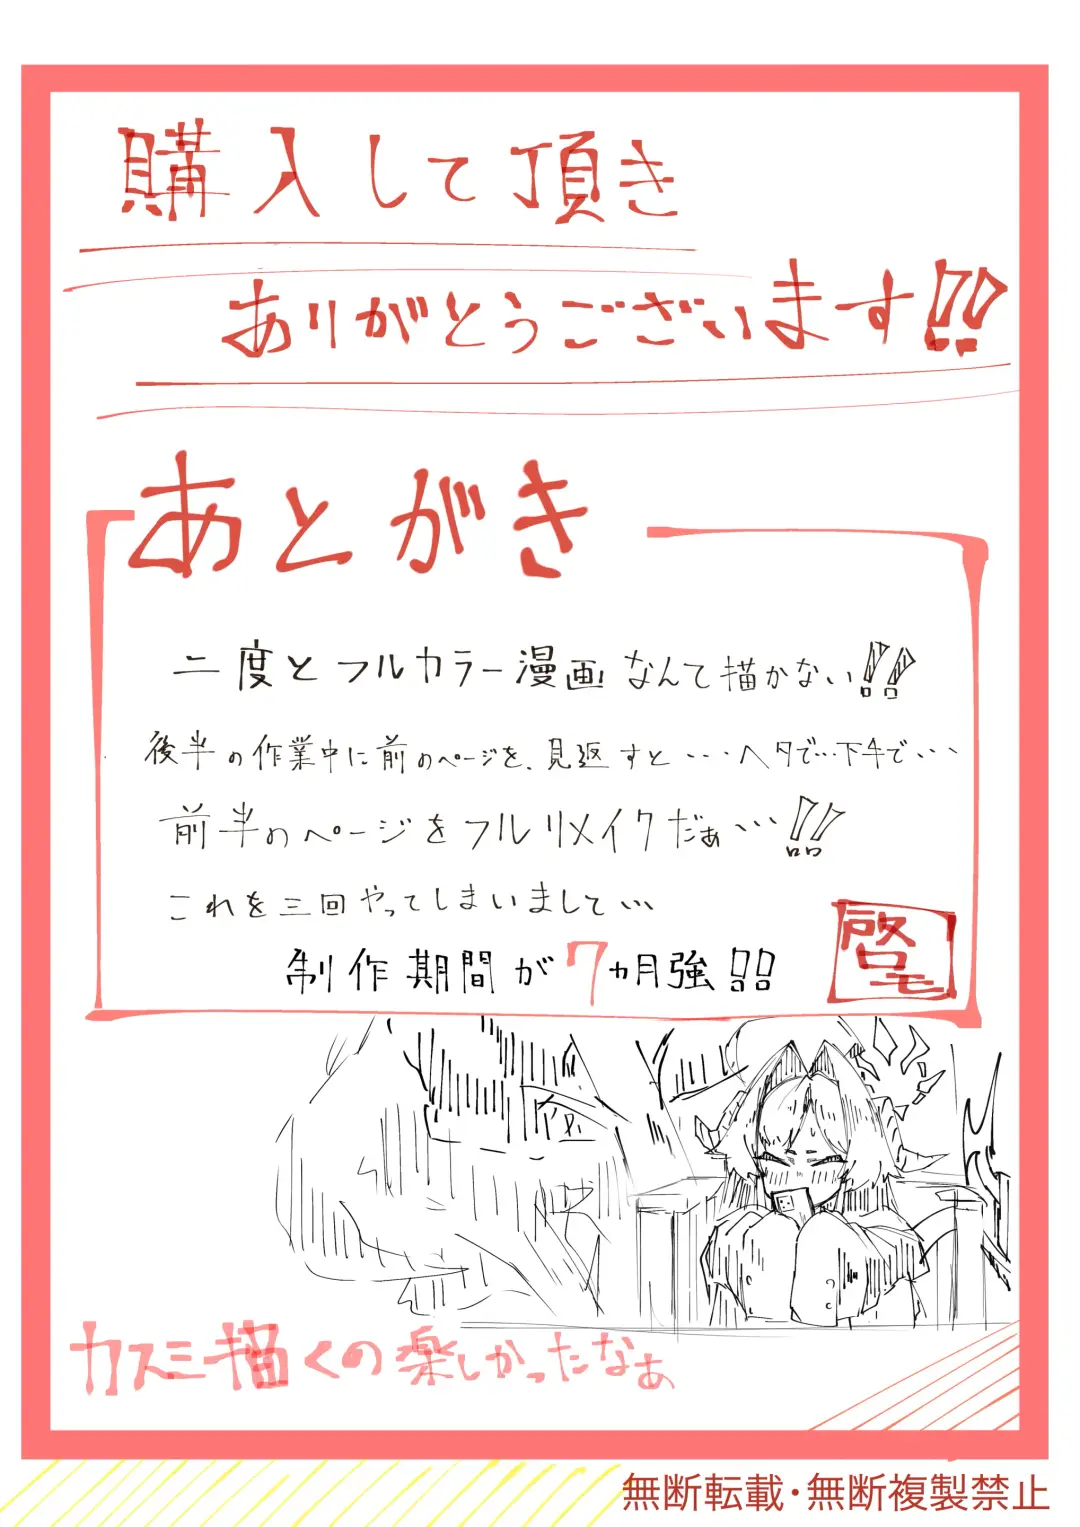 購入して頂き
ありがとうございます!!
あとがき
二度とフルカラー漫画なんて描かない!!
後半の作業中に前のページを、見返すと・・・ヘタで…下手で・・・
前半のページをフルリメイクだぁ・・・!!
これを三回やってしまいまして…
制作期間が7ヵ月強!!
カスミ描くの楽しかったなぁ
無断転載・無断複製禁止